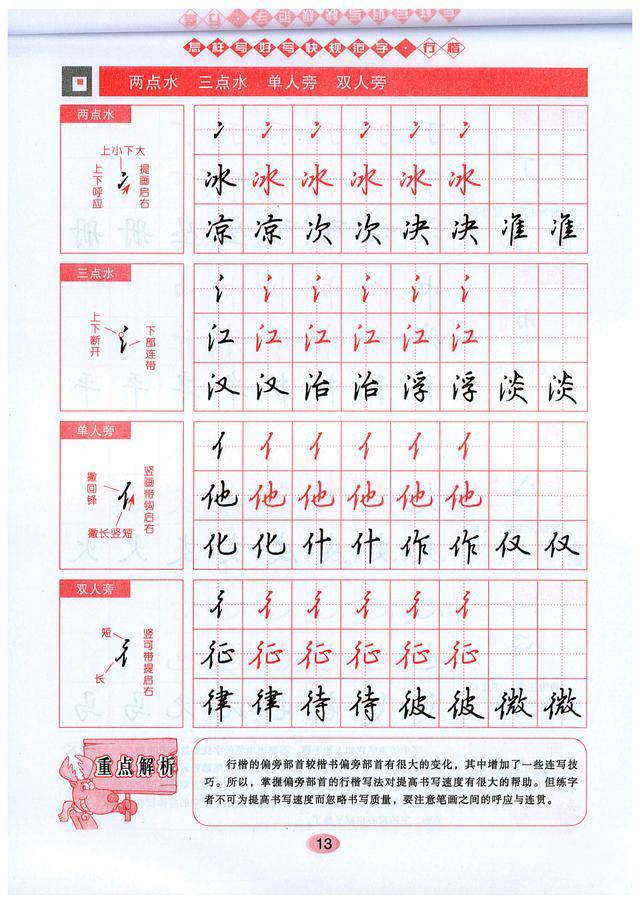 怎样写好写快规范字·行楷
两点水 三点水 单人旁 双人旁
两点水
上小下大
上下呼应
提画启右
冫 冫 冫 冫 冫 冫
冰 冰 冰 冰 冰 冰
凉 凉 次 次 决 决 准 准
三点水
上下断开
下部连带
氵 氵 氵 氵 氵 氵
江 江 江 江 江 江
汉 汉 治 治 浮 浮 淡 淡
单人旁
撇回锋
竖画带钩启右
撇长竖短
亻 亻 亻 亻 亻 亻
他 他 他 他 他 他
化 化 什 什 作 作 仅 仅
双人旁
短
长
竖可带提启右
彳 彳 彳 彳 彳 彳
征 征 征 征 征 征
律 律 待 待 彼 彼 微 微
重点解析
行楷的偏旁部首较楷书偏旁部首有很大的变化，其中增加了一些连写技
巧。所以，掌握偏旁部首的行楷写法对提高书写速度有很大的帮助。但练字
者不可为提高书写速度而忽略书写质量，要注意笔画之间的呼应与连贯。
13